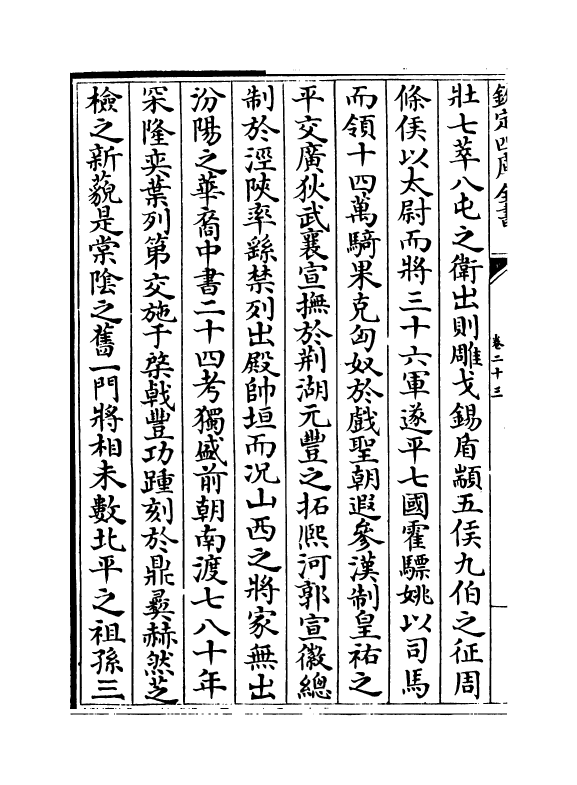 欽定四庫全書
卷二十三
壯七萃八屯之衛出則雕戈錫盾顓五侯九伯之征周
條侯以太尉而將三十六軍遂平七國霍驃姚以司馬
而領十四萬騎果克匈奴於戲聖朝遐參漢制皇祐之
平交廣狄武襄宣撫於荆湖元豐之拓熈河郭宣徽總
制於涇陜率繇禁列出殿帥垣而况山西之將家無出
汾陽之華裔中書二十四考獨盛前朝南渡七八十年
罙隆奕葉列第交施于棨戟豐功踵刻於鼎彞赫然芝
檢之新藐是棠陰之舊一門將相未數北平之祖孫三